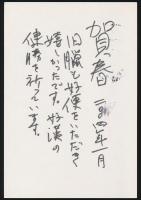 賀春 一九八四年一月
旧臘は好便をいただき
嬉しかったです。好漢の
健勝を祈っています。